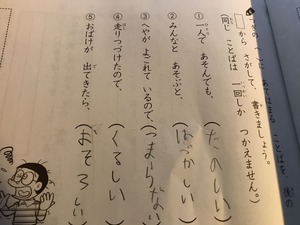 つぎの　　に　あてはまる　ことばを、後の
から　さがして、書きましょう。
(同じ　ことばは　一回しか　つかえません。)
① 一人で　あそんでも、(たのしい)
② みんなと　あそぶと、(はづかしい)
③ へやが　よごれて　いるので、(つまらない)
④ 走りつづけたので、(くるしい)
⑤ おばけが　出てきたら、(おそろしい)